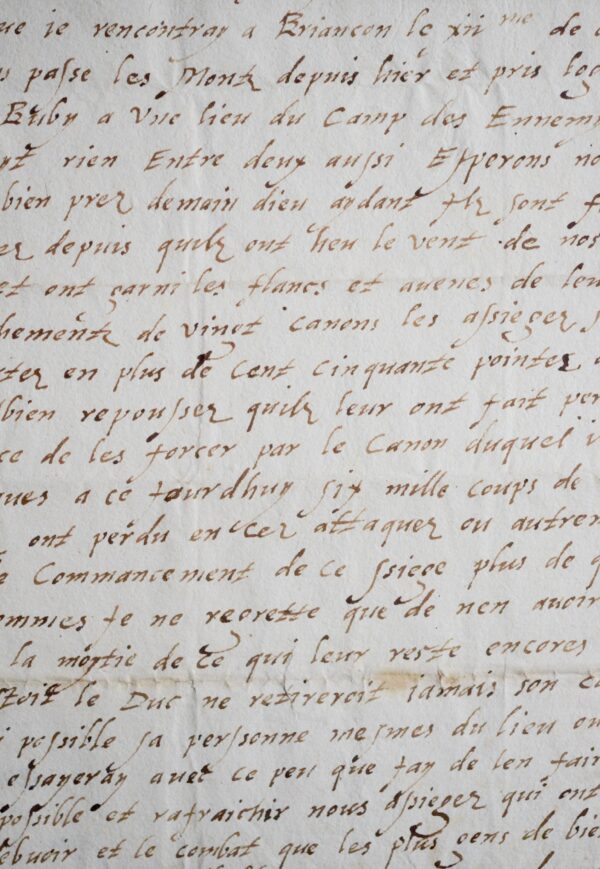 ue ie rencontray a Briancon le xii me de
s passe les Montz depuis hier et pris log
Euby a Vne lieu du Camp des Ennem
yt rien Entre deux aussi Esperons no
bien prez demain dieu aydant Ilz sont f
depuis quilz ont heu le vent de nos
et ont garni les flancs et auenes de leu
hementz de vingt canons les assiegez
tez en plus de cent cinquante pointez
bien repoussez quilz leur ont fait per
ce de les forcer par le Canon duquel i
ques a ce Iourdhuy six mille coups de
ont perdu en cez attaquez ou autrem
Commancement de ce ssiege plus de q
ommes Ie ne regrette que de nen auoir
la moytie de ce qui leur reste encores
stoit le Duc ne retireroit iamais son c
i possible sa perssonne mesmes du lieu ou
essayeray auec ce peu que Iay de len fair
possible et rafraichir nous assiegez qui ont
ebuoir et le combat que les plus gens de bie